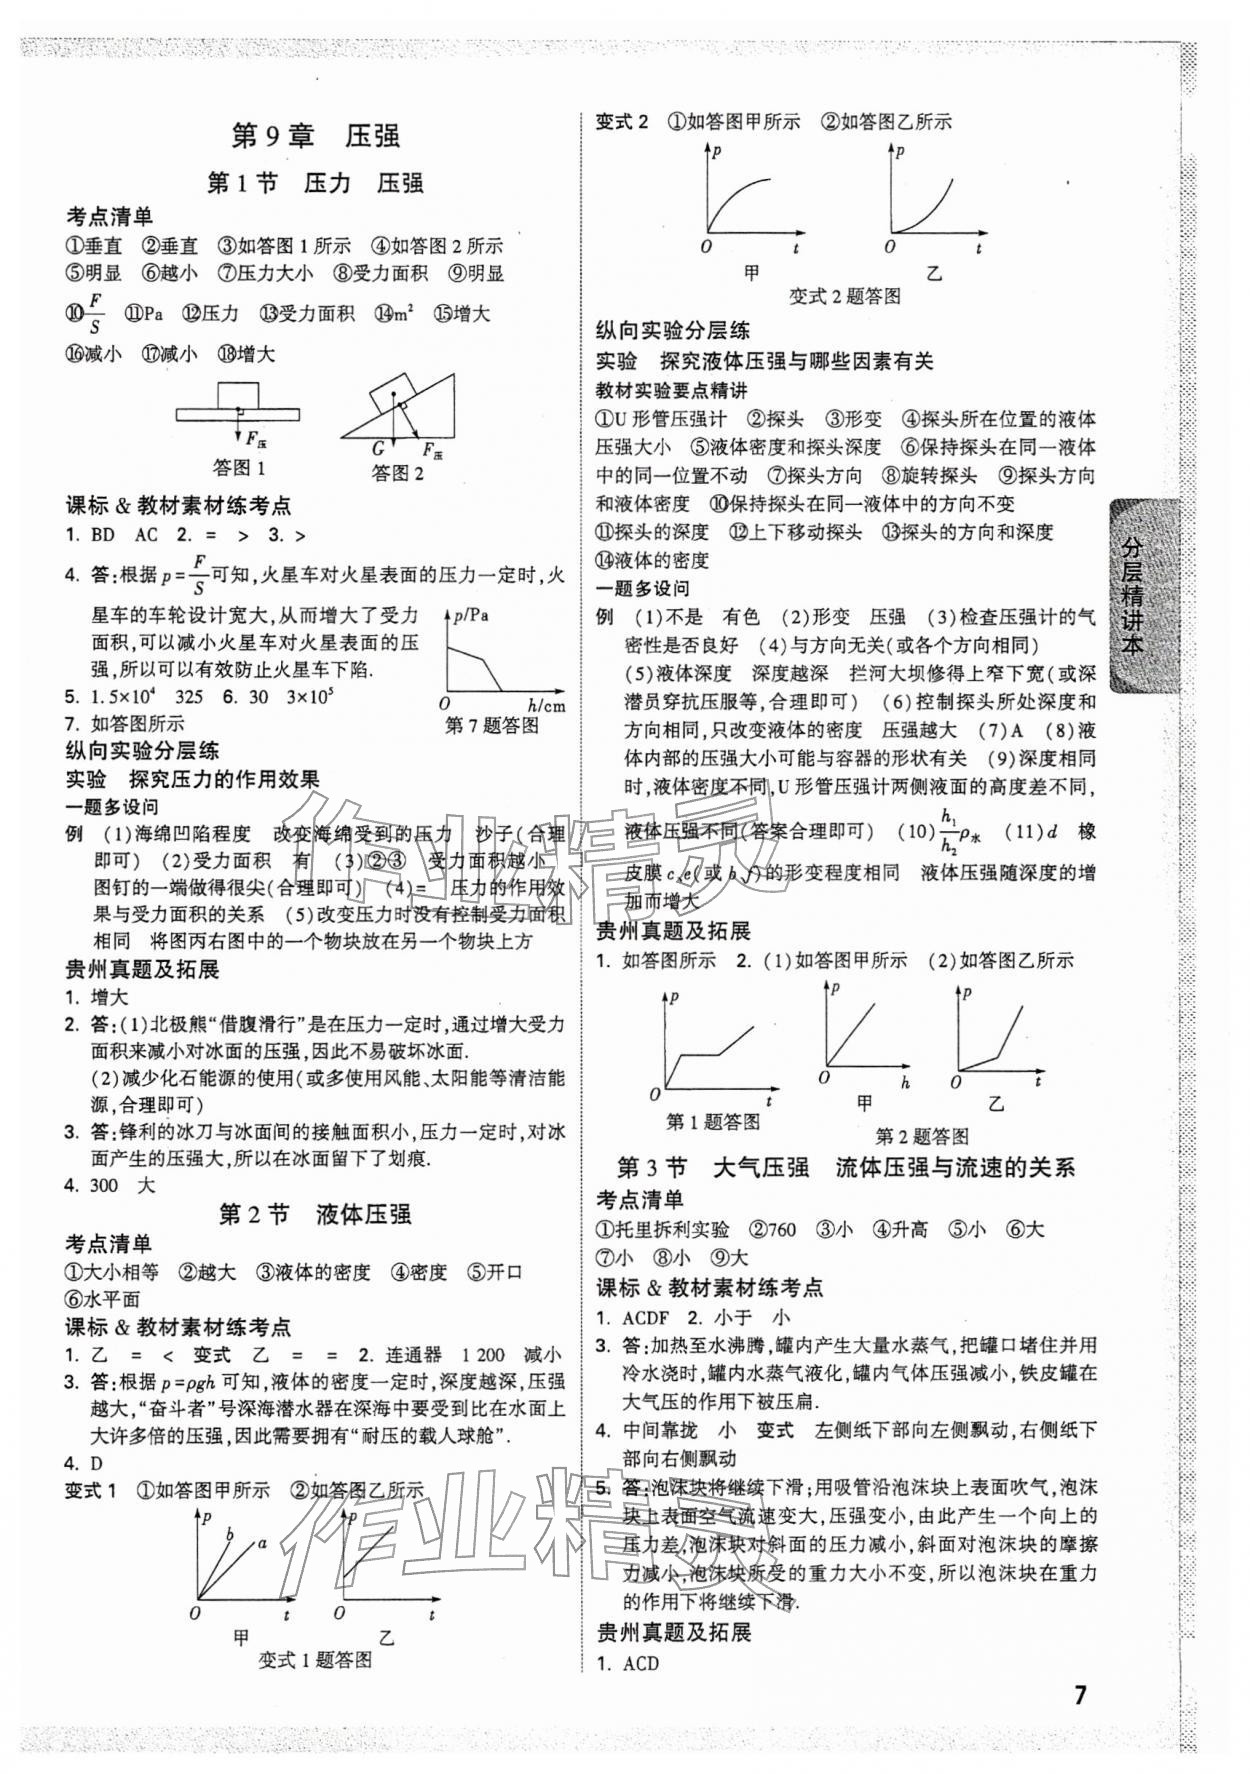 第9章　压强
第1节　压力　压强
考点清单
①垂直　②垂直　③如答图1所示　④如答图2所示
⑤明显　⑥越小　⑦压力大小　⑧受力面积　⑨明显
⑩F/S　⑪Pa　⑫压力　⑬受力面积　⑭m²　⑮增大
⑯减小　⑰减小　⑱增大
F压
答图1
G　F压
答图2
课标&教材素材练考点
1. BD　AC　2. =　>　3. >
4. 答:根据p=F/S可知,火星车对火星表面的压力一定时,火
星车的车轮设计宽大,从而增大了受力
面积,可以减小火星车对火星表面的压
强,所以可以有效防止火星车下陷.
5. 1.5×10⁴　325　6. 30　3×10⁵
7. 如答图所示
p/Pa
O　h/cm
第7题答图
纵向实验分层练
实验　探究压力的作用效果
一题多设问
例　(1)海绵凹陷程度　改变海绵受到的压力　沙子(合理
即可)　(2)受力面积　有　(3)②③　受力面积越小
图钉的一端做得很尖(合理即可)　(4)=　压力的作用效
果与受力面积的关系　(5)改变压力时没有控制受力面积
相同　将图丙右图中的一个物块放在另一个物块上方
贵州真题及拓展
1. 增大
2. 答:(1)北极熊“借腹滑行”是在压力一定时,通过增大受力
面积来减小对冰面的压强,因此不易破坏冰面.
(2)减少化石能源的使用(或多使用风能、太阳能等清洁能
源,合理即可)
3. 答:锋利的冰刀与冰面间的接触面积小,压力一定时,对冰
面产生的压强大,所以在冰面留下了划痕.
4. 300　大
第2节　液体压强
考点清单
①大小相等　②越大　③液体的密度　④密度　⑤开口
⑥水平面
课标&教材素材练考点
1. 乙　=　<　变式　乙　=　=　2. 连通器　1 200　减小
3. 答:根据p=ρgh可知,液体的密度一定时,深度越深,压强
越大,“奋斗者”号深海潜水器在深海中要受到比在水面上
大许多倍的压强,因此需要拥有“耐压的载人球舱”.
4. D
变式1　①如答图甲所示　②如答图乙所示
p　b　a　O　t
甲
p　O　t
乙
变式1题答图
变式2　①如答图甲所示　②如答图乙所示
p　O　t
甲
p　O　t
乙
变式2题答图
纵向实验分层练
实验　探究液体压强与哪些因素有关
教材实验要点精讲
①U形管压强计　②探头　③形变　④探头所在位置的液体
压强大小　⑤液体密度和探头深度　⑥保持探头在同一液体
中的同一位置不动　⑦探头方向　⑧旋转探头　⑨探头方向
和液体密度　⑩保持探头在同一液体中的方向不变
⑪探头的深度　⑫上下移动探头　⑬探头的方向和深度
⑭液体的密度
一题多设问
例　(1)不是　有色　(2)形变　压强　(3)检查压强计的气
密性是否良好　(4)与方向无关(或各个方向相同)
(5)液体深度　深度越深　拦河大坝修得上窄下宽(或深
潜员穿抗压服等,合理即可)　(6)控制探头所处深度和
方向相同,只改变液体的密度　压强越大　(7)A　(8)液
体内部的压强大小可能与容器的形状有关　(9)深度相同
时,液体密度不同,U形管压强计两侧液面的高度差不同,
液体压强不同(答案合理即可)　(10)h₁/h₂ρ水　(11)d　橡
皮膜c、e(或b、f)的形变程度相同　液体压强随深度的增
加而增大
贵州真题及拓展
1. 如答图所示　2. (1)如答图甲所示　(2)如答图乙所示
p　O　t
第1题答图
p　O　h
甲
p　O　t
乙
第2题答图
第3节　大气压强　流体压强与流速的关系
考点清单
①托里拆利实验　②760　③小　④升高　⑤小　⑥大
⑦小　⑧小　⑨大
课标&教材素材练考点
1. ACDF　2. 小于　小
3. 答:加热至水沸腾,罐内产生大量水蒸气,把罐口堵住并用
冷水浇时,罐内水蒸气液化,罐内气体压强减小,铁皮罐在
大气压的作用下被压扁.
4. 中间靠拢　小　变式　左侧纸下部向左侧飘动,右侧纸下
部向右侧飘动
5. 答:泡沫块将继续下滑;用吸管沿泡沫块上表面吹气,泡沫
块上表面空气流速变大,压强变小,由此产生一个向上的
压力差,泡沫块对斜面的压力减小,斜面对泡沫块的摩擦
力减小,泡沫块所受的重力大小不变,所以泡沫块在重力
的作用下将继续下滑.
贵州真题及拓展
1. ACD
分层精讲本
7
作业精灵
作业精灵